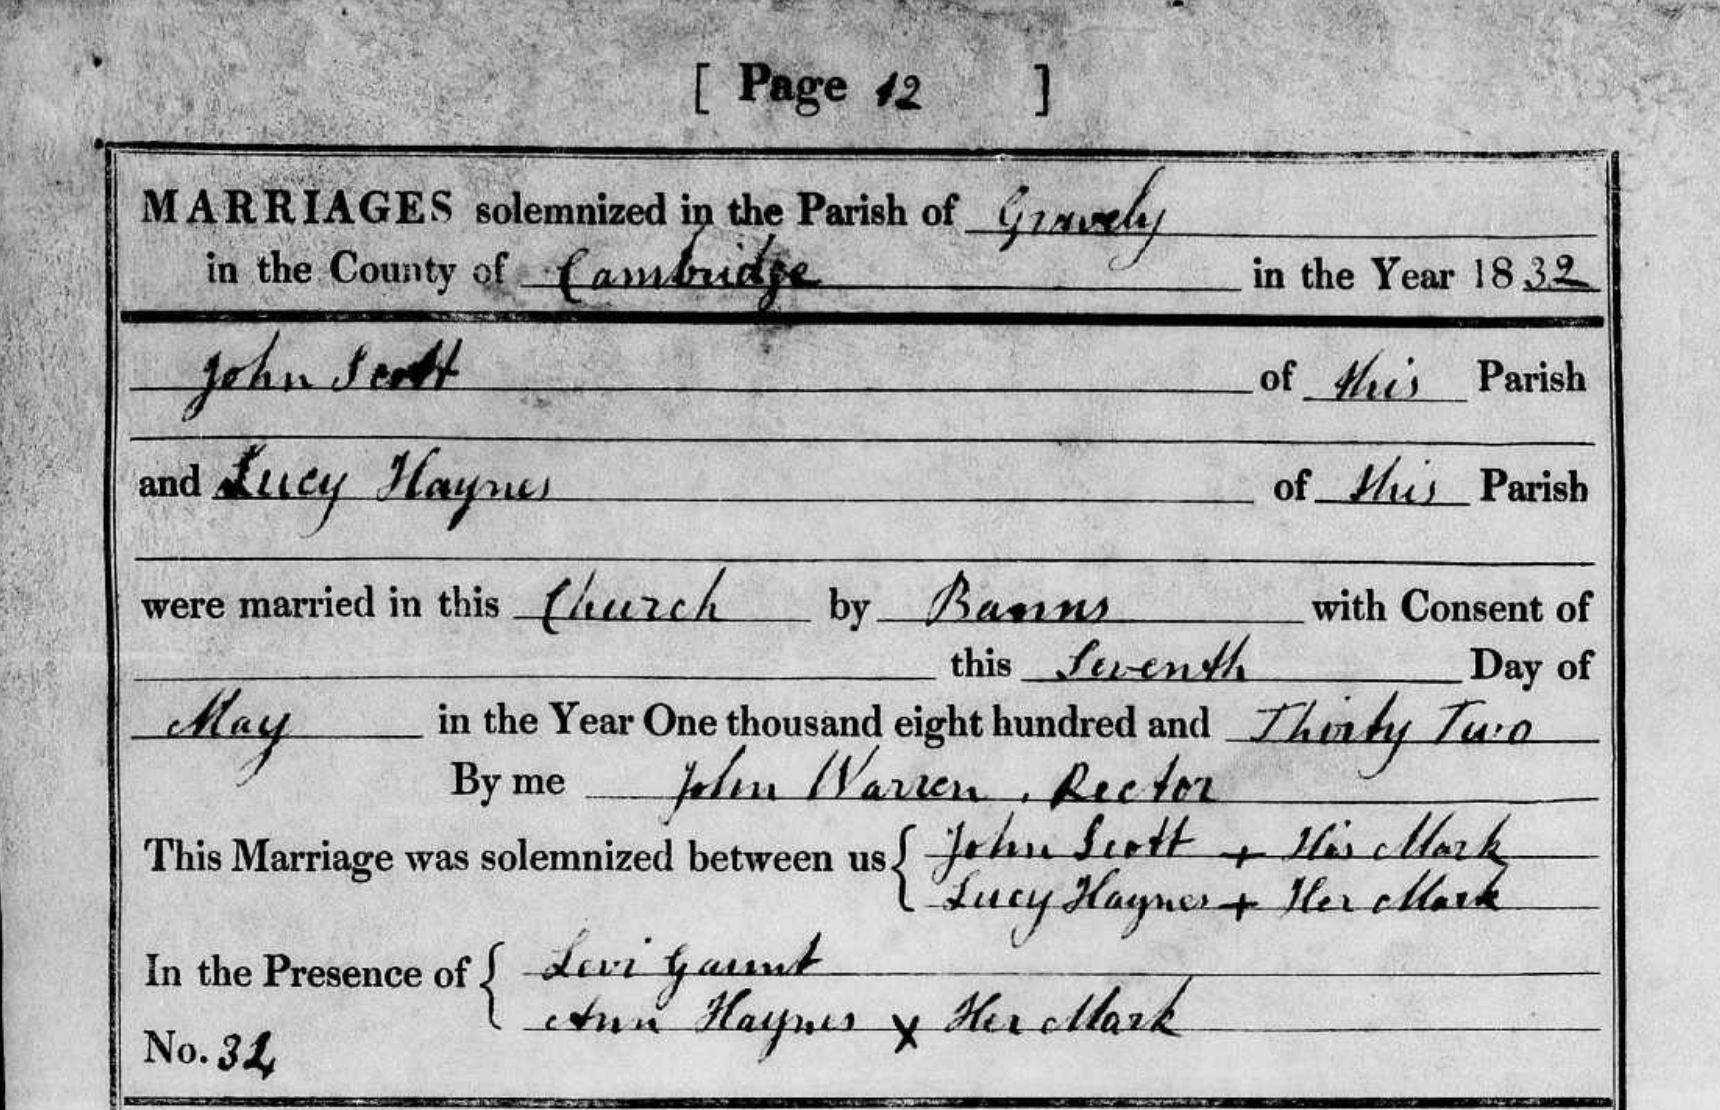 [ Page 12 ]
MARRIAGES solemnized in the Parish of Gravely
in the County of Cambridge in the Year 1832
John Scott of this Parish
and Lucy Haynes of this Parish
were married in this Church by Banns with Consent of
this Seventh Day of
May in the Year One thousand eight hundred and Thirty Two
By me John Warren, Rector
This Marriage was solemnized between us { John Scott + His Mark
Lucy Haynes + Her Mark
In the Presence of { Levi Gaunt
Ann Haynes X Her Mark
No.